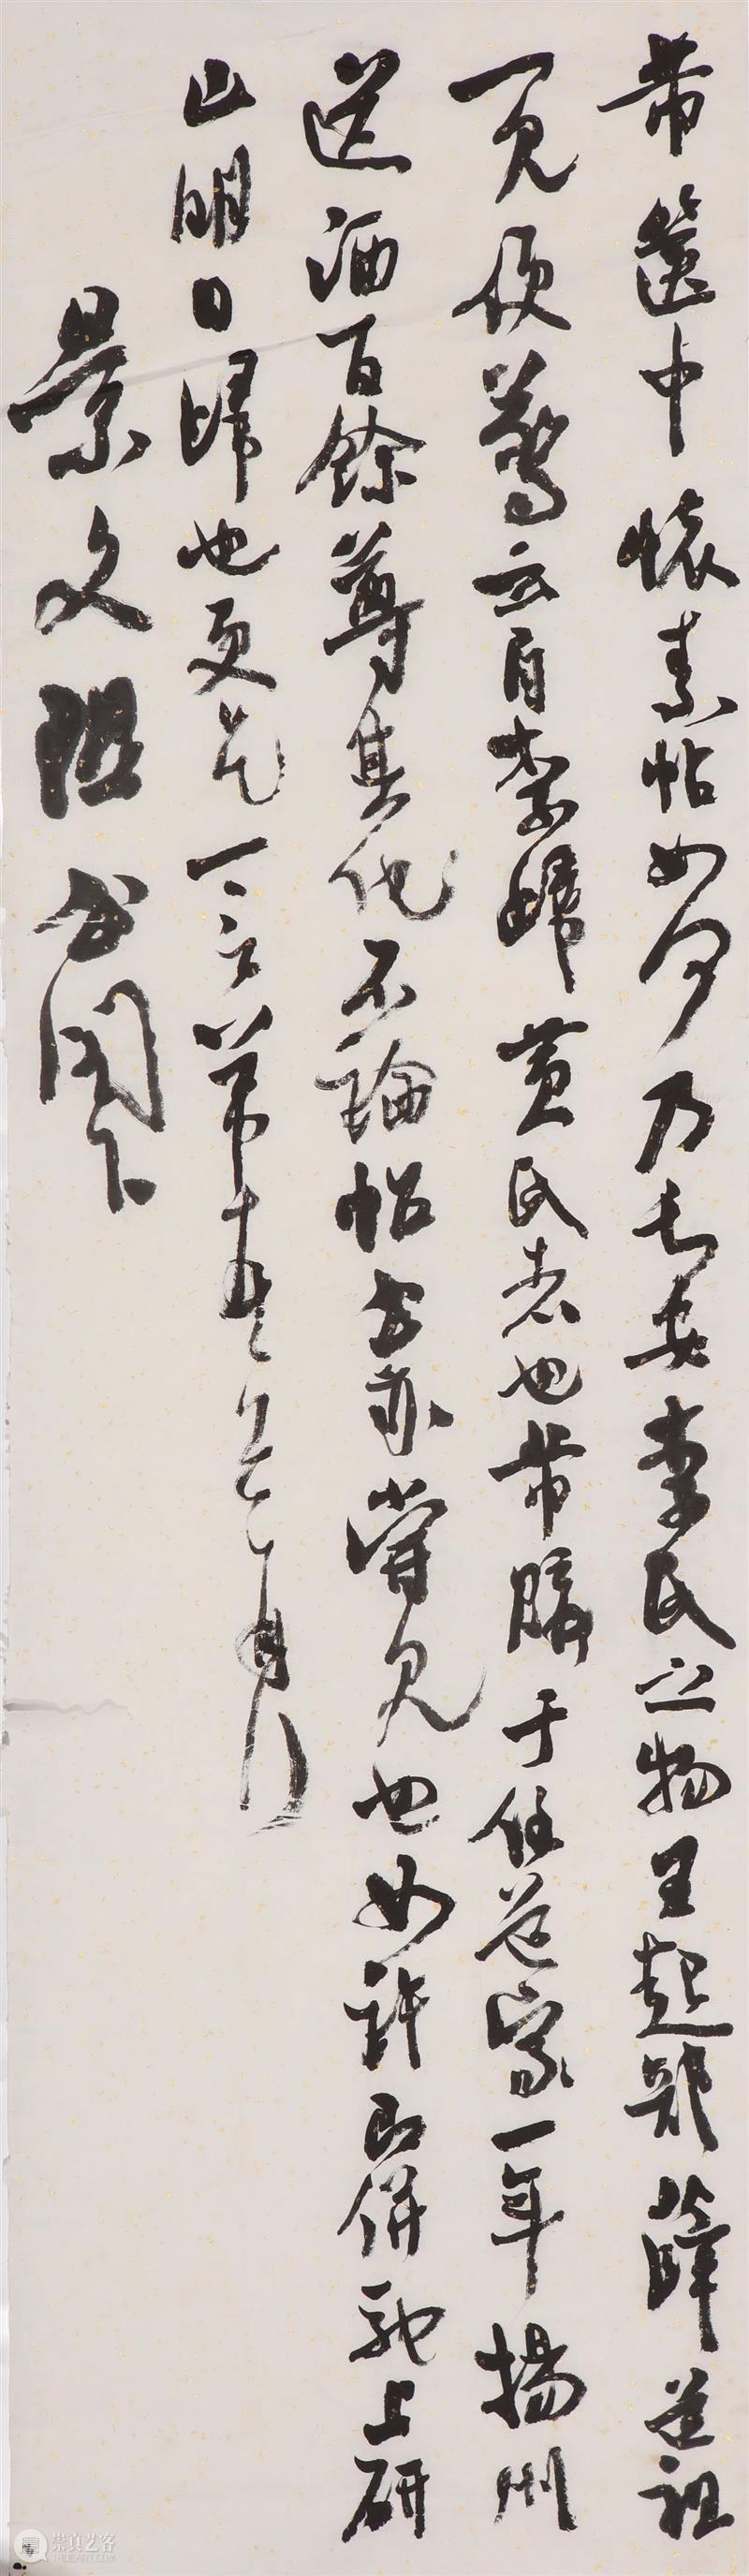 芾箧中懷素帖如何乃長安李氏之物王起部薛道祖
一見便驚云自李歸黃氏者也芾購于任道家一年揚州
送酒百餘尊其他不論帖公亦嘗見也如許即併馳上研
山明日歸也更乞一言芾頓首再拜
景文隰公閣下
崇真艺客
TRUEART.COM